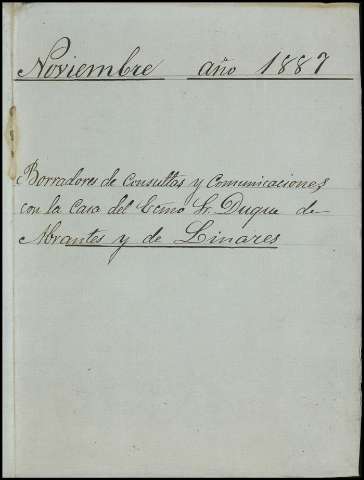 Noviembre año 1887
Borradores de Consultas y Comunicaciones
con la Casa del Ecmo Sr. Duque de
Abrantes y de Linares